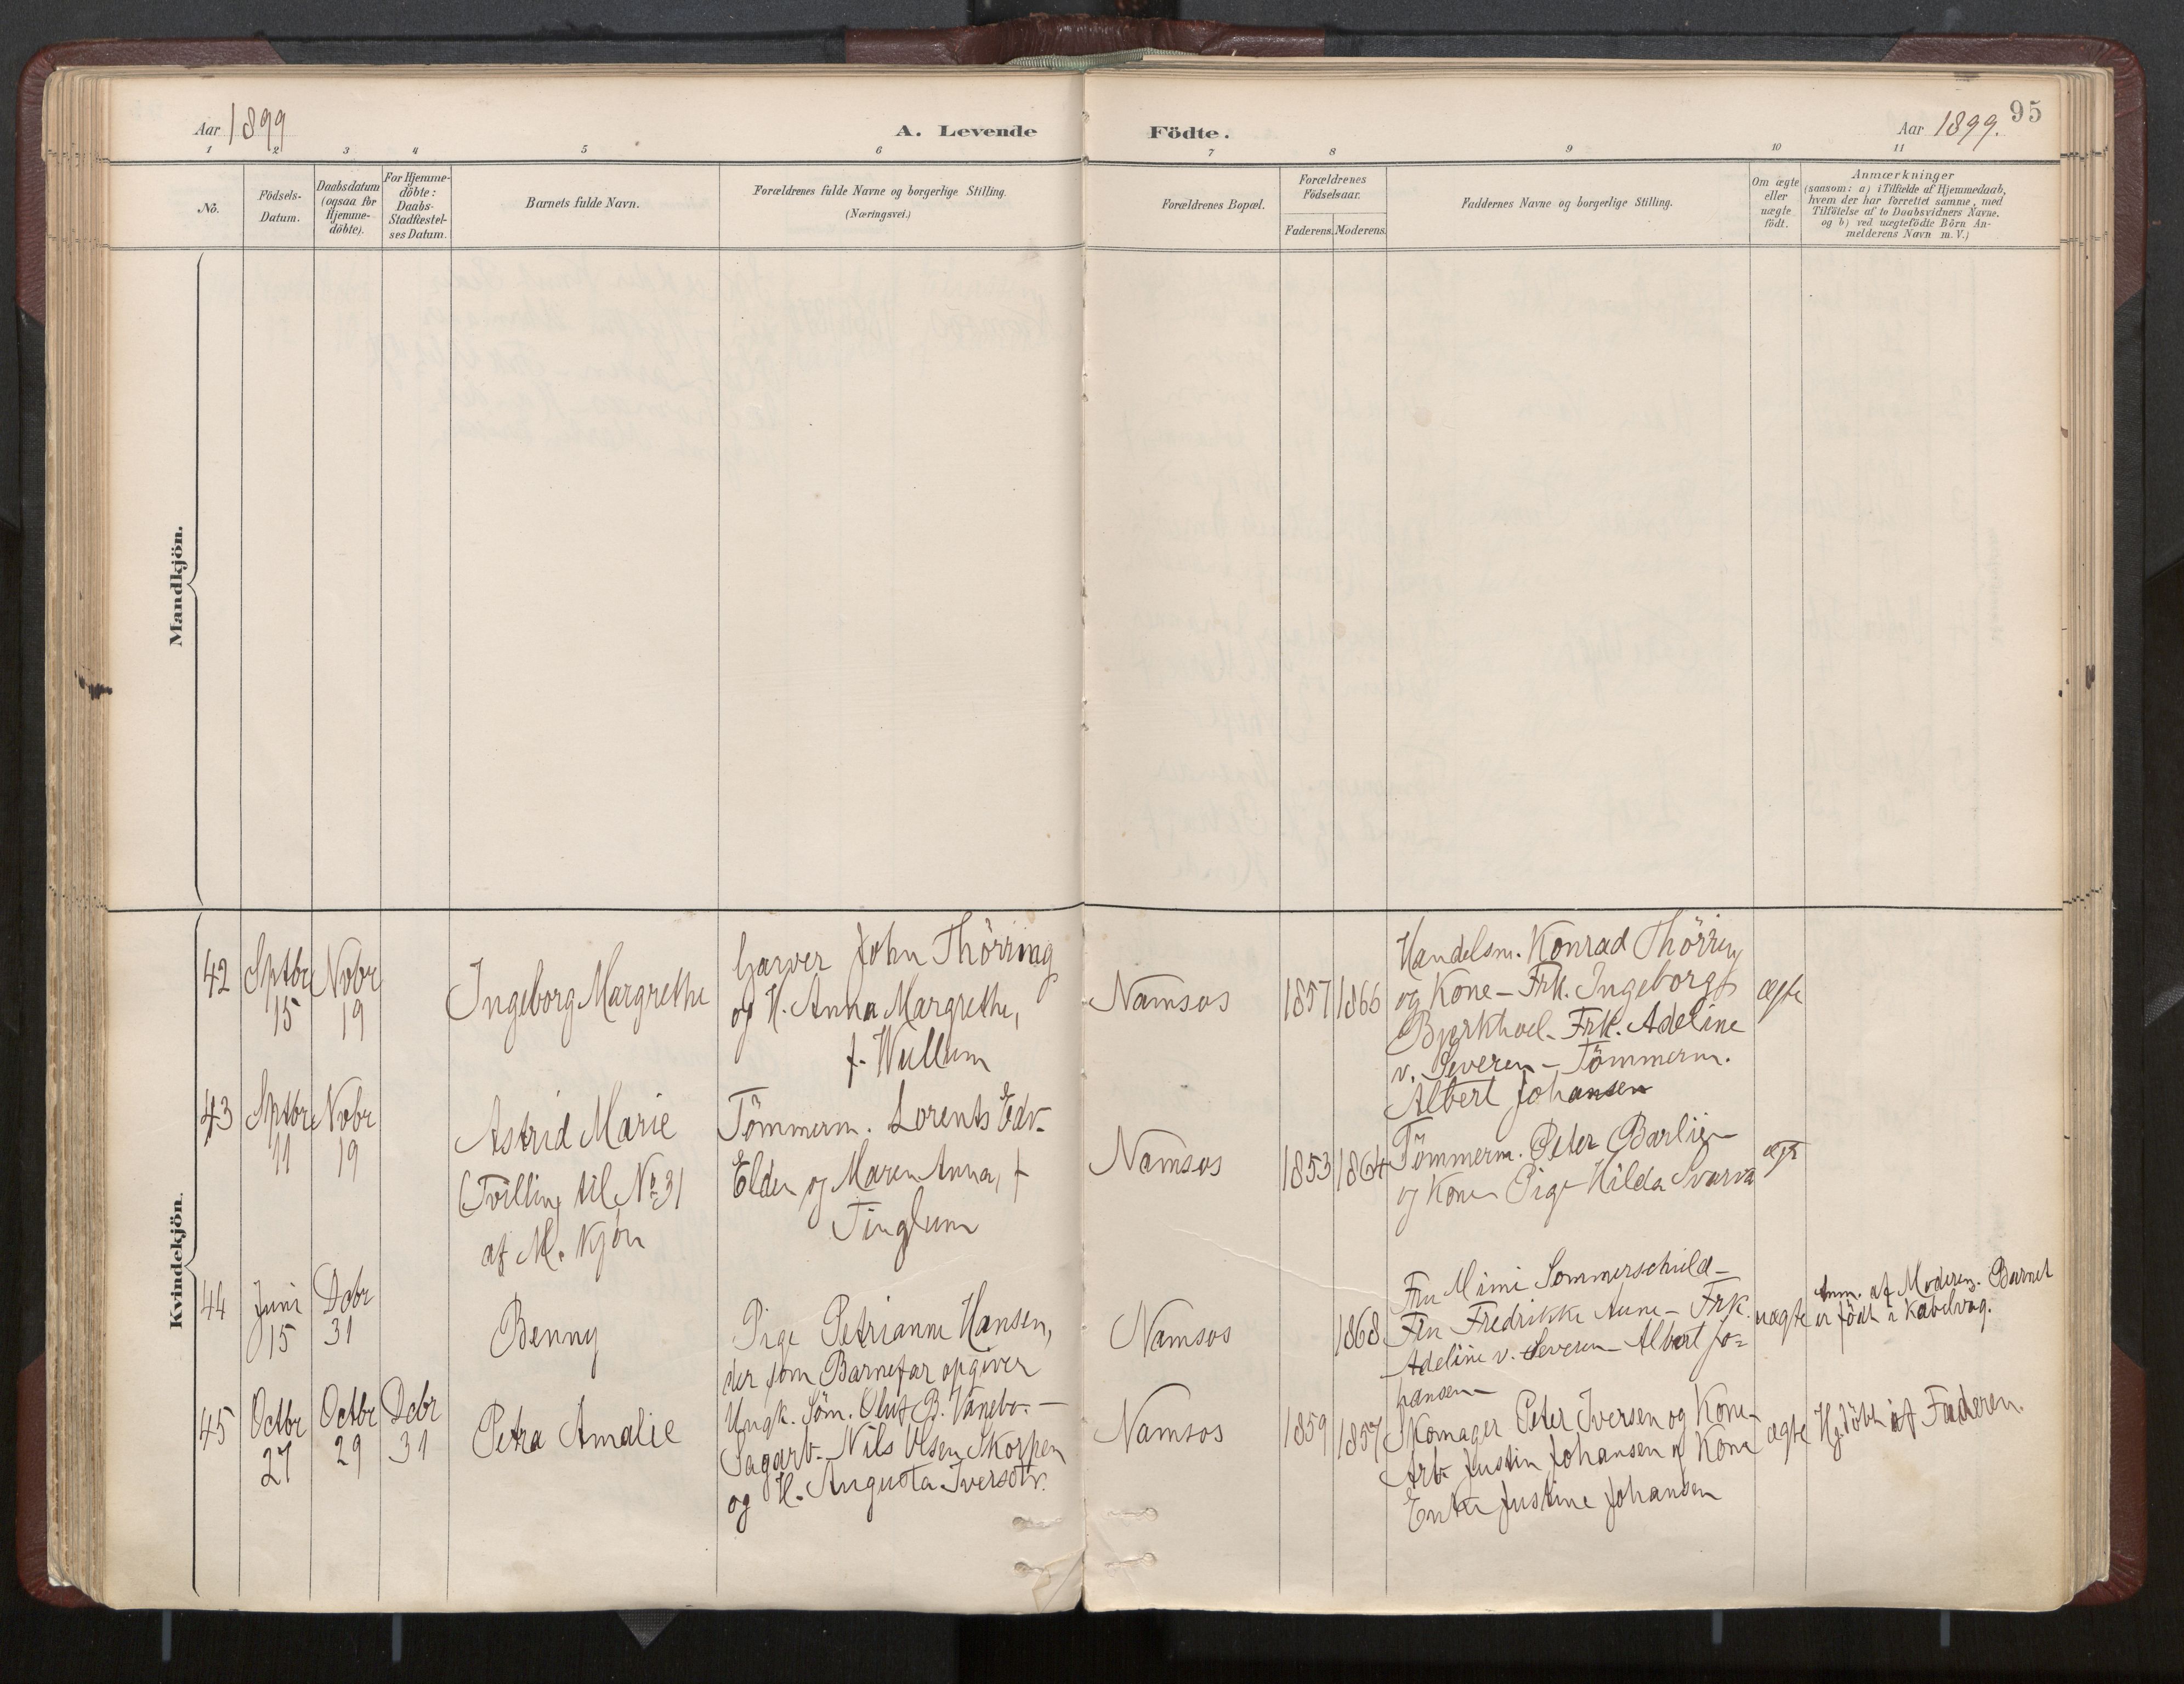 95
Aar 1899
A. Levende Födte.
Aar 1899.
1 2 3 4 5 6 7 8 9 10 11
No.
Födsels-
Datum.
Daabsdatum
(ogsaa for
Hjemme-
döbte).
For Hjemme-
döbte:
Daabs-
Stadfæstel-
ses Datum.
Barnets fulde Navn.
Forældrenes fulde Navne og borgerlige Stilling.
(Næringsvei.)
Forældrenes Bopæl.
Forældrenes
Födselsaar.
Faderens. Moderens.
Faddernes Navne og borgerlige Stilling.
Om ægte
eller
uægte
födt.
Anmærkninger
(saasom: a) i Tilfælde af Hjemmedaab,
hvem der har forrettet samme, med
Tilföielse af to Daabsvidners Navne.
og b) ved uægtefödte Börn An-
melderens Navn m. V.)
Mandkjön.
Kvindekjön.
42
Sptbr
15
Novbr
19
Ingeborg Margrethe
Garver John Thörring
og H. Anna Margrethe,
f. Wullum
Namsos
1857
1866
Handelsm. Konrad Thörring
og Kone – Frk. Ingeborg
Bjerkhoel. Frk. Adeline
v. Severen – Tömmerm.
Albert Johansen
ægte
43
Sptbr
11
Novbr
19
Astrid Marie
(Tvilling til No 31
af M. Kjön
Tömmerm. Lorents Edv.
Elden og Maren Anna, f
Tinglum
Namsos
1853
1864
Tömmerm. Peter Barlie –
og Kone Pige Hilda Svarva
ægte
44
Juni
15
Debr
31
Benny
Pige Petrianne Hansen,
der som Barnefar opgiver
Ungk. Söm. Oluf B. Vanebo. –
Namsos
1868
Fru Mimi Sommerschield –
Fru Fredrikke Aune – Frk.
Adeline v. Severen – Albert Jo=
hansen –
uægte
Anm. af Moderen. Barnet
er födt i Kabelvaag.
45
Octbr
27
Octbr
29
Debr
31
Petra Amalie
Sagarb. Nils Olsen Skorpen
og H. Augusta Iversdtr.
Namsos
1859
1857
Skomager Peter Iversen og Kone –
Arb. Justin Johansen og Kone
Enke Justine Johansen
ægte
Hj.döbt af Faderen.